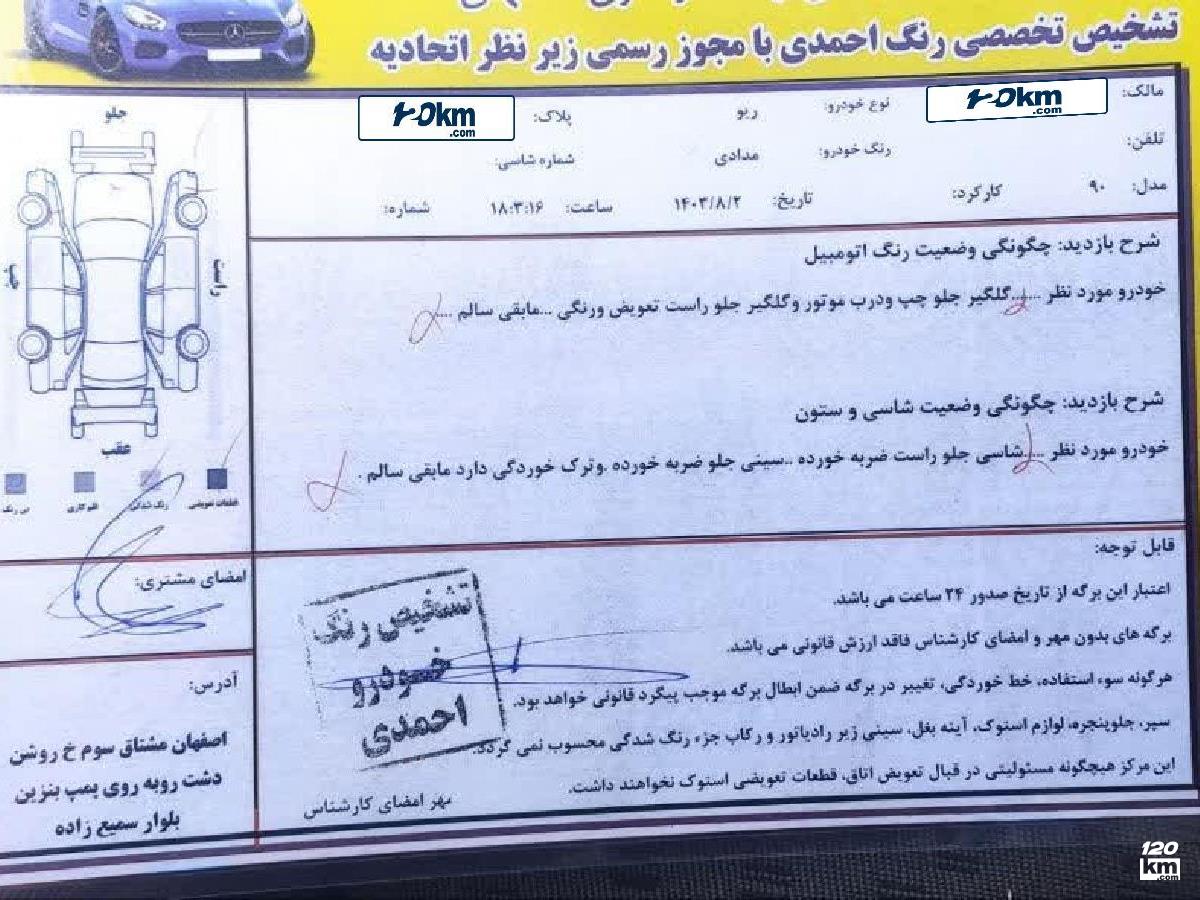 تشخیص تخصصی رنگ احمدی با مجوز رسمی زیر نظر اتحادیه
مالک: 120km.com نوع خودرو: ریو پلاک: 120km.com
تلفن: رنگ خودرو: مدادی شماره شاسی:
مدل: ۹۰ کارکرد: تاریخ: ۱۴۰۳/۸/۲ ساعت: ۱۸:۳:۱۶ شماره:
جلو
چپ
راست
عقب
قطعات تعویضی رنگ شدگی قلم کاری بی رنگ
شرح بازدید: چگونگی وضعیت رنگ اتومبیل
خودرو مورد نظر ......گلگیر جلو چپ ودرب موتور وگلگیر جلو راست تعویض ورنگی ...مابقی سالم ....
شرح بازدید: چگونگی وضعیت شاسی و ستون
خودرو مورد نظر ....شاسی جلو راست ضربه خورده ..سینی جلو ضربه خورده .وترک خوردگی دارد مابقی سالم .
قابل توجه:
اعتبار این برگه از تاریخ صدور ۲۴ ساعت می باشد.
برگه های بدون مهر و امضای کارشناس فاقد ارزش قانونی می باشد.
هرگونه سوء استفاده، خط خوردگی، تغییر در برگه ضمن ابطال برگه موجب پیگرد قانونی خواهد بود.
سپر، جلوپنجره، لوازم استوک، آینه بغل، سینی زیر رادیاتور و رکاب جزء رنگ شدگی محسوب نمی گردد.
این مرکز هیچگونه مسئولیتی در قبال تعویض اتاق، قطعات تعویضی استوک نخواهند داشت.
مهر امضای کارشناس
تشخیص رنگ
خودرو
احمدی
امضای مشتری:
آدرس:
اصفهان مشتاق سوم خ روشن
دشت روبه روی پمپ بنزین
بلوار سمیع زاده
120
km
.com